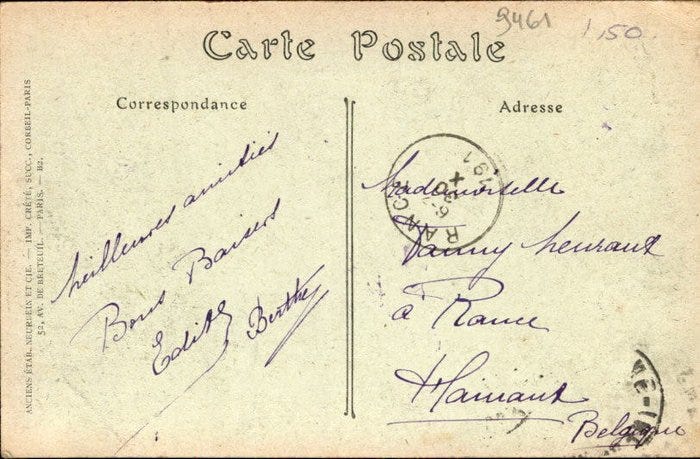 9461
1,50
Carte Postale
Correspondance
Adresse
Meilleures amitiés
Bons Baisers
Edith Berthe
Mademoiselle
Fanny
à Rance
Hainaut
Belgique
RANCE
ANCIENS ÉTAB. NEURDEIN ET CIE. — IMP. CRÉTÉ, SUCC., CORBEIL-PARIS
52, AV. DE BRETEUIL. — PARIS. — B2.